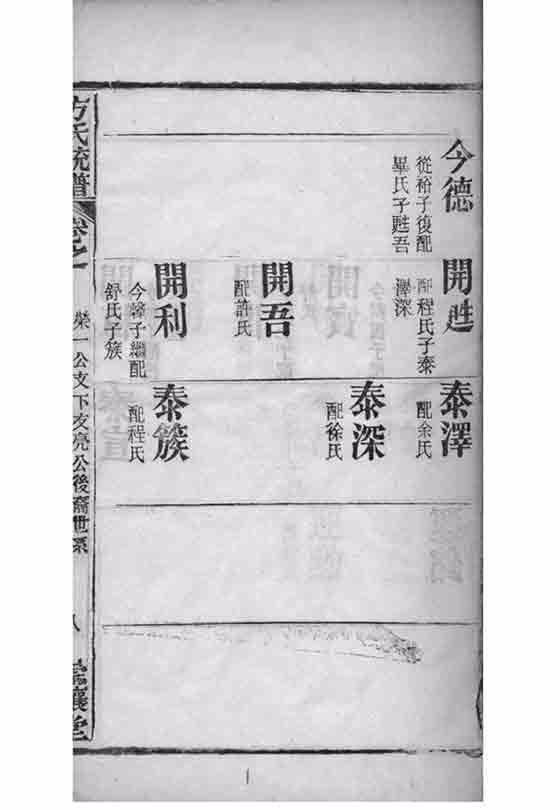 今德
從裕子復配
畢氏子甦吾
開甦
配程氏子泰
澤深
泰澤
配余氏
泰深
配徐氏
開吾
配許氏
開利
今子繼配
舒氏子簇
泰簇
配程氏
方氏統譜
卷之
榮一公支下亥亮公後裔世系
八